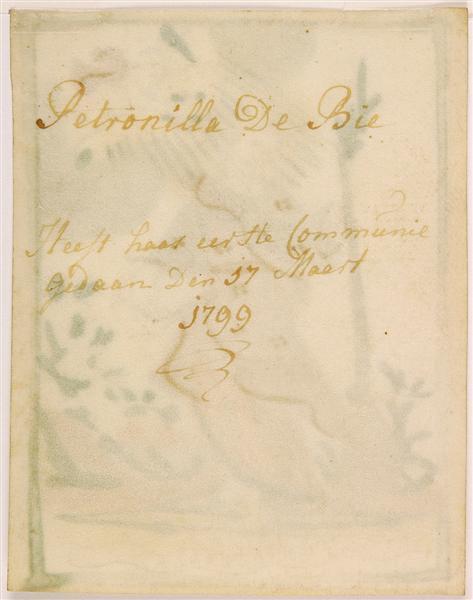 Petronilla De Bie
Heeft haar eerste Communie
gedaan Den 17 Maart
1799